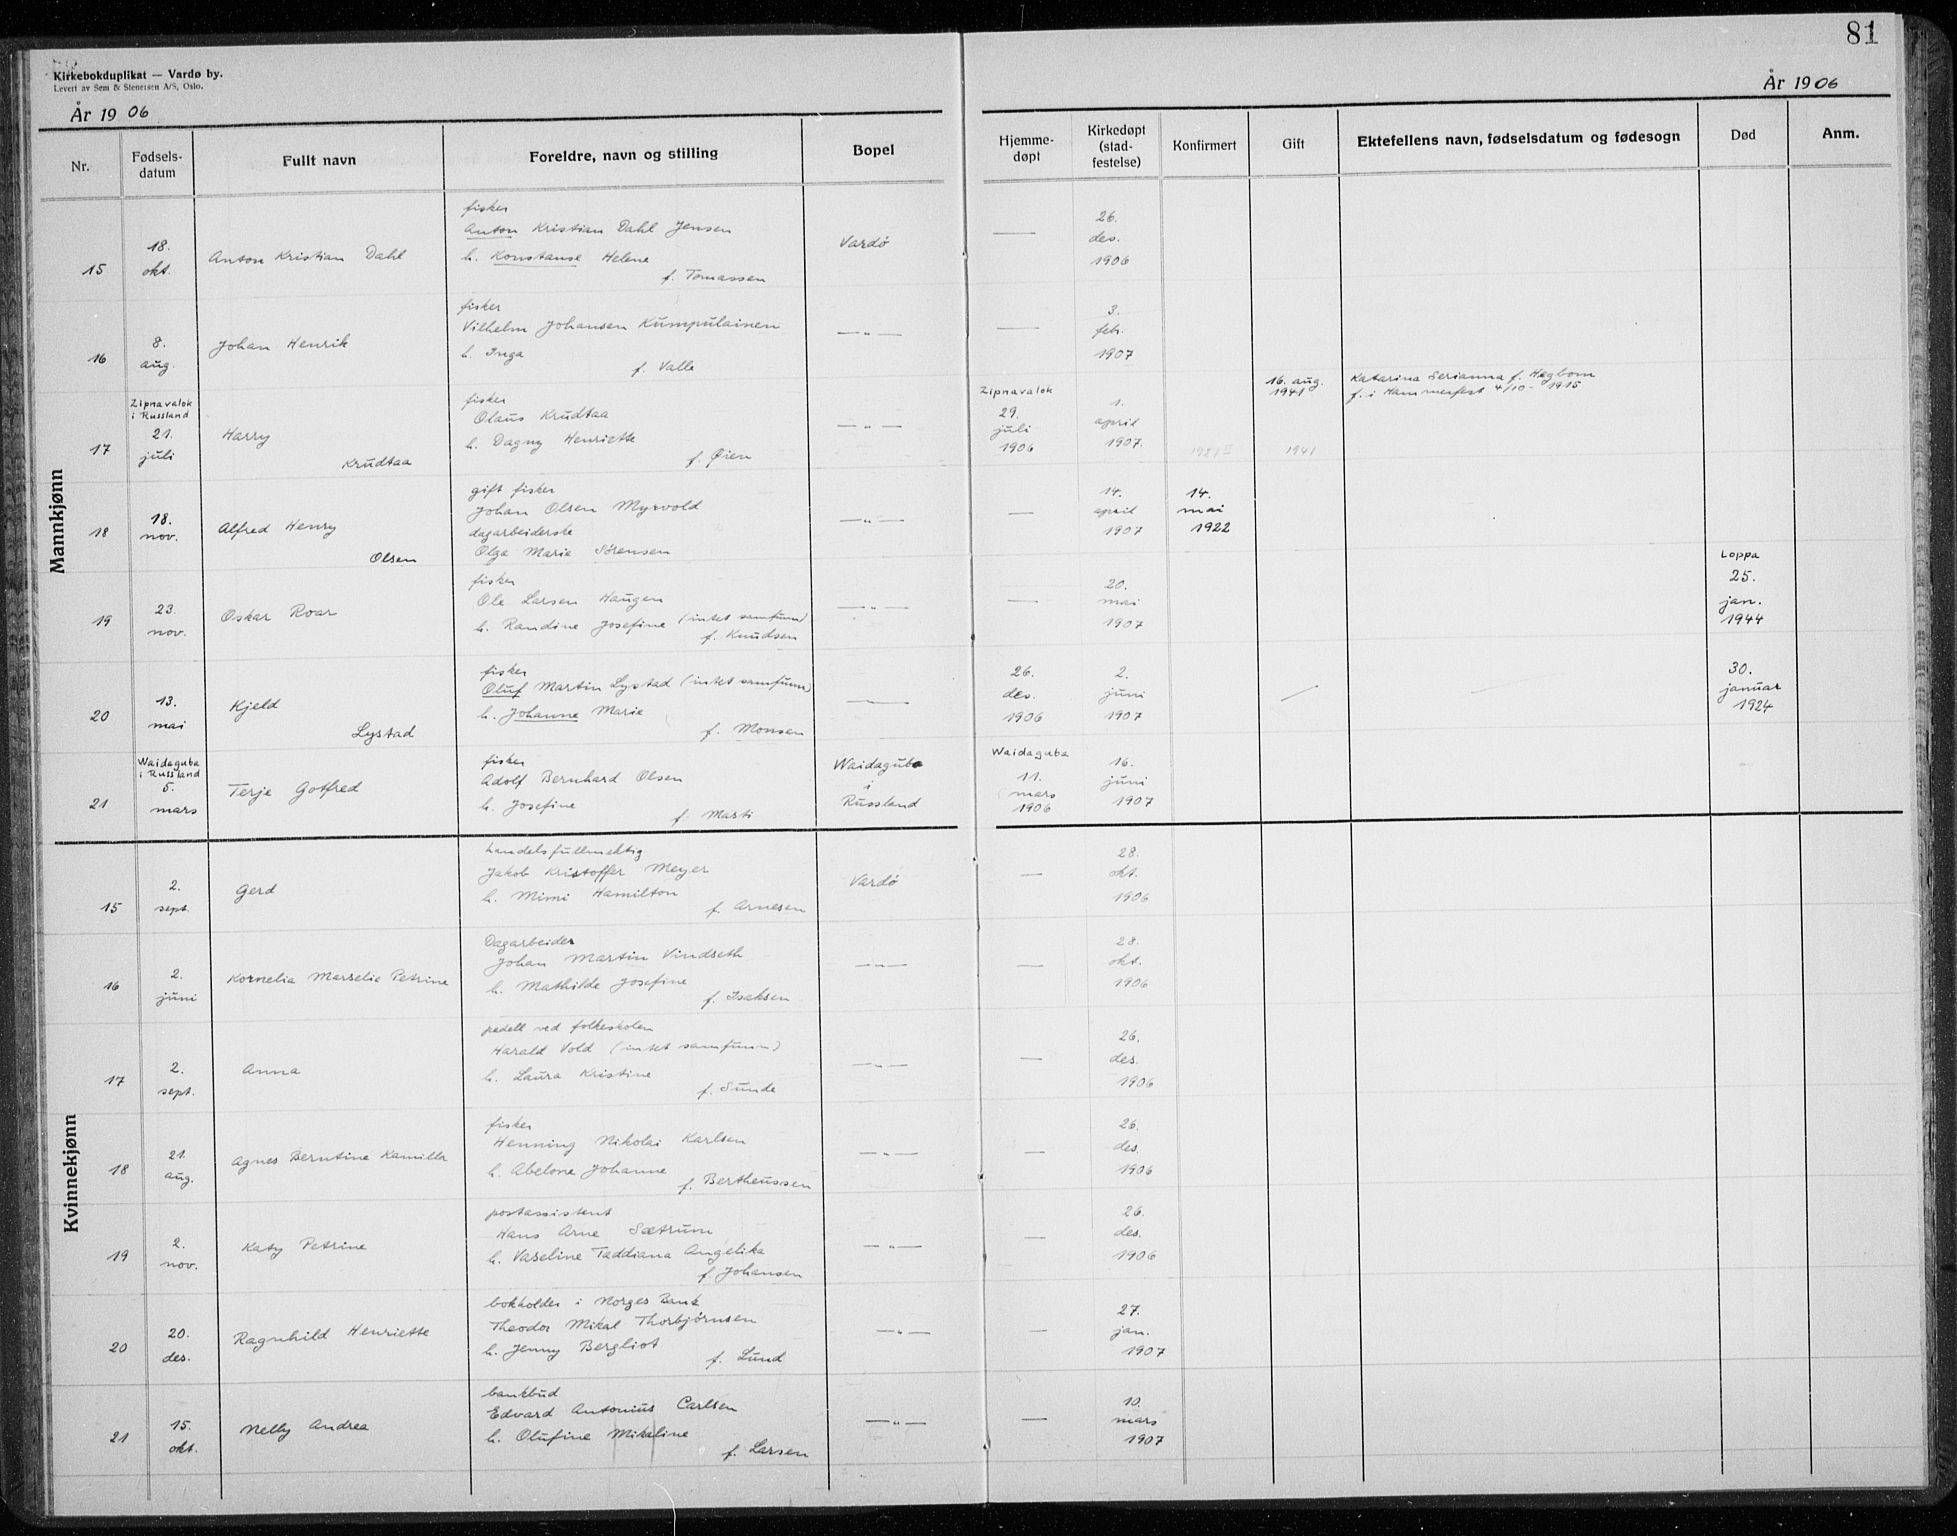 81
Kirkebokduplikat — Vardø by.
Levert av Sem & Stenersen A/S, Oslo.
År 1906
År 1906
Nr.
Fødsels-
datum
Fullt navn
Foreldre, navn og stilling
Bopel
Hjemme-
døpt
Kirkedøpt
(stad-
festelse)
Konfirmert
Gift
Ektefellens navn, fødselsdatum og fødesogn
Død
Anm.
Mannkjønn
15
18.
okt.
Anton Kristian Dahl
fisker
Anton Kristian Dahl Jensen
h. Konstanse Helene
f. Tomassen
Vardø
—
26.
des.
1906
16
8.
aug.
Johan Henrik
fisker
Vilhelm Johansen Kumpulainen
h. Inga
f. Valle
—„—
—
3.
feb.
1907
17
Zipnavalok
i Russland
21.
juli
Harry
Krudtaa
fisker
Olaus Krudtaa
h. Dagny Henriette
f. Øien
—„—
Zipnavalok
29.
juli
1906
1.
april
1907.
1921 II
16. aug.
1941
1941
Katarina Serianna f. Hegbom
f. i Hammerfest 4/10 - 1915
18
18.
nov.
Alfred Henry
Olsen
gift fisker
Johan Olsen Myrvold
dagarbeiderske
Olga Marie Sørensen
—„—
—
14.
april
1907
14.
mai
1922
19
23.
nov.
Oskar Roar
fisker
Ole Larsen Haugen
h. Randine Josefine (intet samfunn)
f. Knudsen
—„—
—
20.
mai
1907
Loppa
25.
jan.
1944
20
13.
mai
Kjeld
Lystad
fisker
Oluf Martin Lystad (intet samfunn)
h. Johanne Marie
f. Monsen
—„—
26.
des.
1906
2.
juni
1907
30.
januar
1924
21
Waidaguba
i Russland
5.
mars
Terje Gotfred
fisker
Adolf Bernhard Olsen
h. Josefine
f. Marti
Waidaguba
i
Russland
Waidaguba
11.
mars
1906
16.
juni
1907
Kvinnekjønn
15
2.
sept.
Gerd
handelsfullmektig
Jakob Kristoffer Meyer
h. Mimi Hamilton
f. Arnesen
Vardø
—
28.
okt.
1906
16
2.
juni
Kornelia Marselie Petrine
Dagarbeider
Johan Martin Vindseth
h. Mathilde Josefine
f. Isaksen
—„—
—
28.
okt.
1906
17
2.
sept.
Anna
pedell ved folkeskolen
Harald Vold (intet samfunn)
h. Laura Kristine
f. Sunde
—„—
—
26.
des.
1906
18
21.
aug.
Agnes Berntine Kamilla
fisker
Henning Nikolai Karlsen
h. Abelone Johanne
f. Bertheussen
—„—
—
26.
des.
1906
19
2.
nov.
Katy Petrine
postassistent
Hans Arne Sætrum
h. Vaseline Taddiana Angelika
f. Johansen
—„—
—
26.
des.
1906
20
20.
des.
Ragnhild Henriette
bokholder i Norges Bank
Theodor Mikal Thorbjørnsen
h. Jenny Bergliot
f. Lund
—„—
—
27.
jan.
1907
21
15.
okt.
Nelly Andrea
bankbud
Edvard Antonius Carlsen
h. Olufine Mikaline
f. Larsen
—„—
—
10.
mars
1907